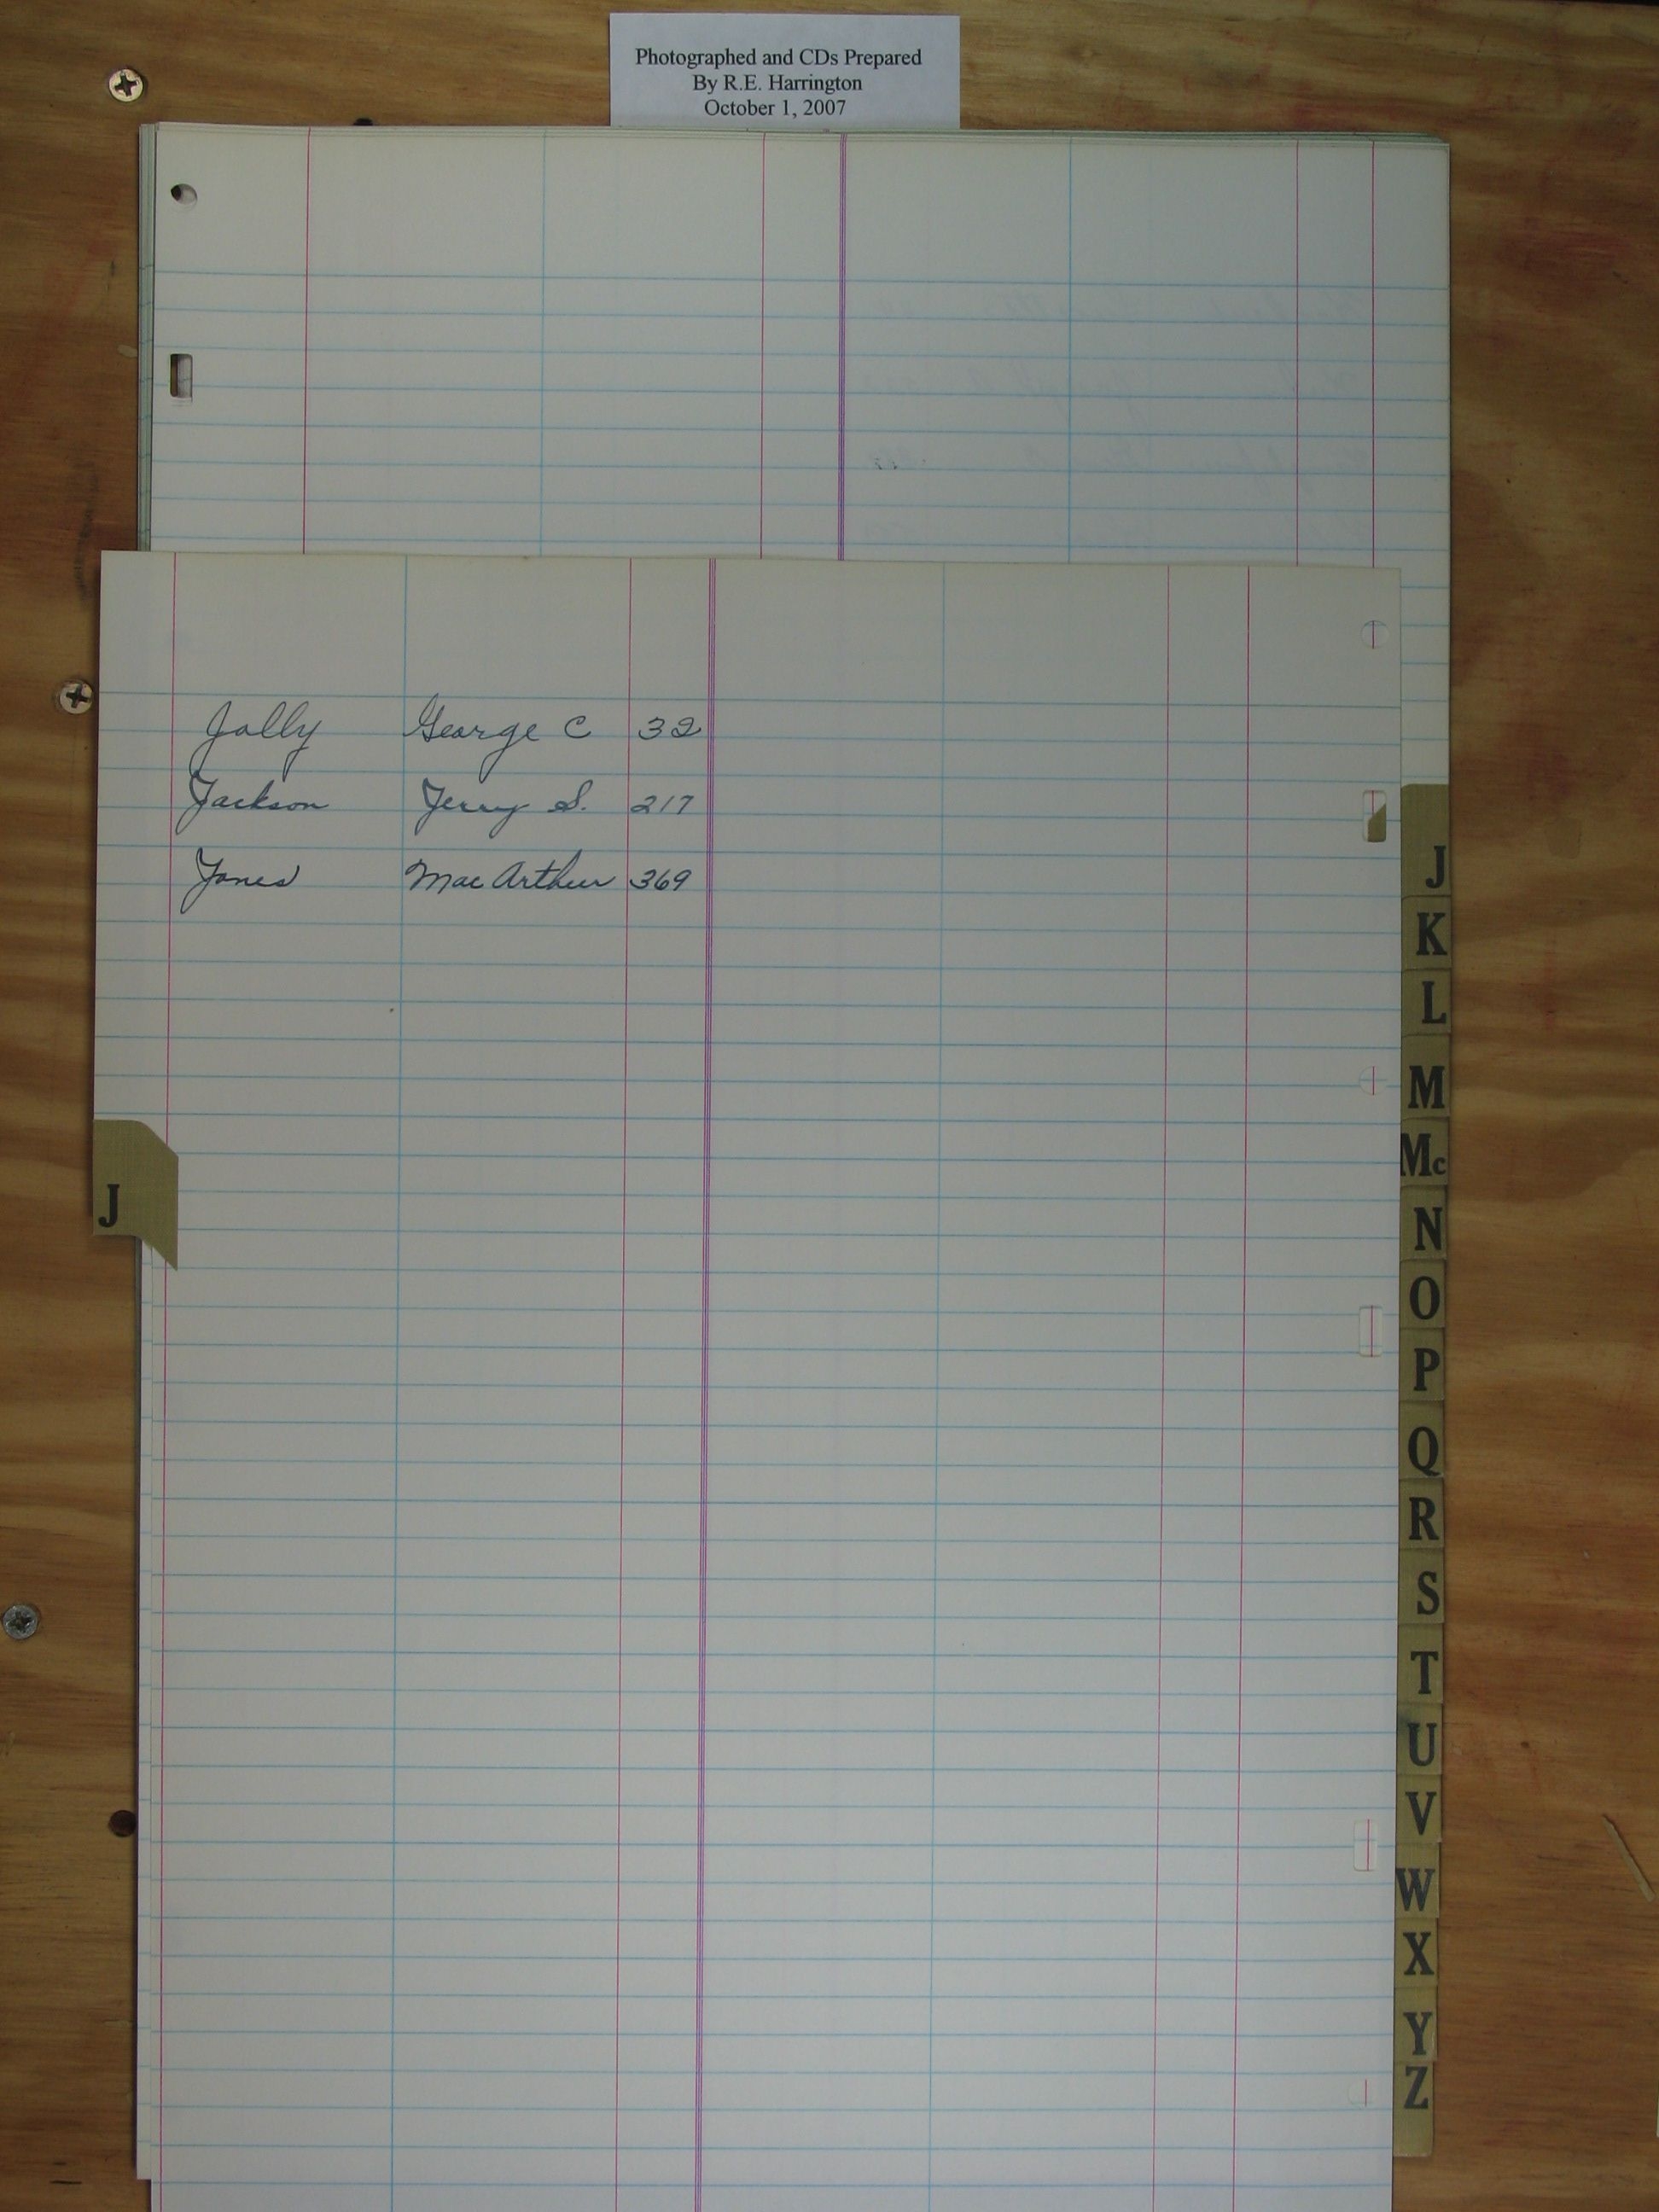 Photographed and CDs Prepared
By R.E. Harrington
October 1, 2007
Jolly George C 32
Jackson Jerry S. 217
Jones MacArthur 369
J
J
K
L
M
Mc
N
O
P
Q
R
S
T
U
V
W
X
Y
Z